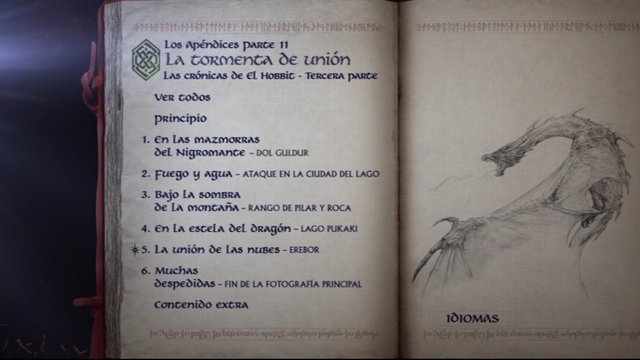 Los Apéndices Parte 11
La tormenta de unión
Las crónicas de El Hobbit - Tercera parte
Ver todos
Principio
1. En las mazmorras
del Nigromante – DOL GULDUR
2. Fuego y agua – ATAQUE EN LA CIUDAD DEL LAGO
3. Bajo la sombra
de la montaña – RANGO DE PILAR Y ROCA
4. En la estela del dragón – LAGO PUKAKI
5. La unión de las nubes – EREBOR
6. Muchas
despedidas – FIN DE LA FOTOGRAFÍA PRINCIPAL
Contenido extra
IDIOMAS